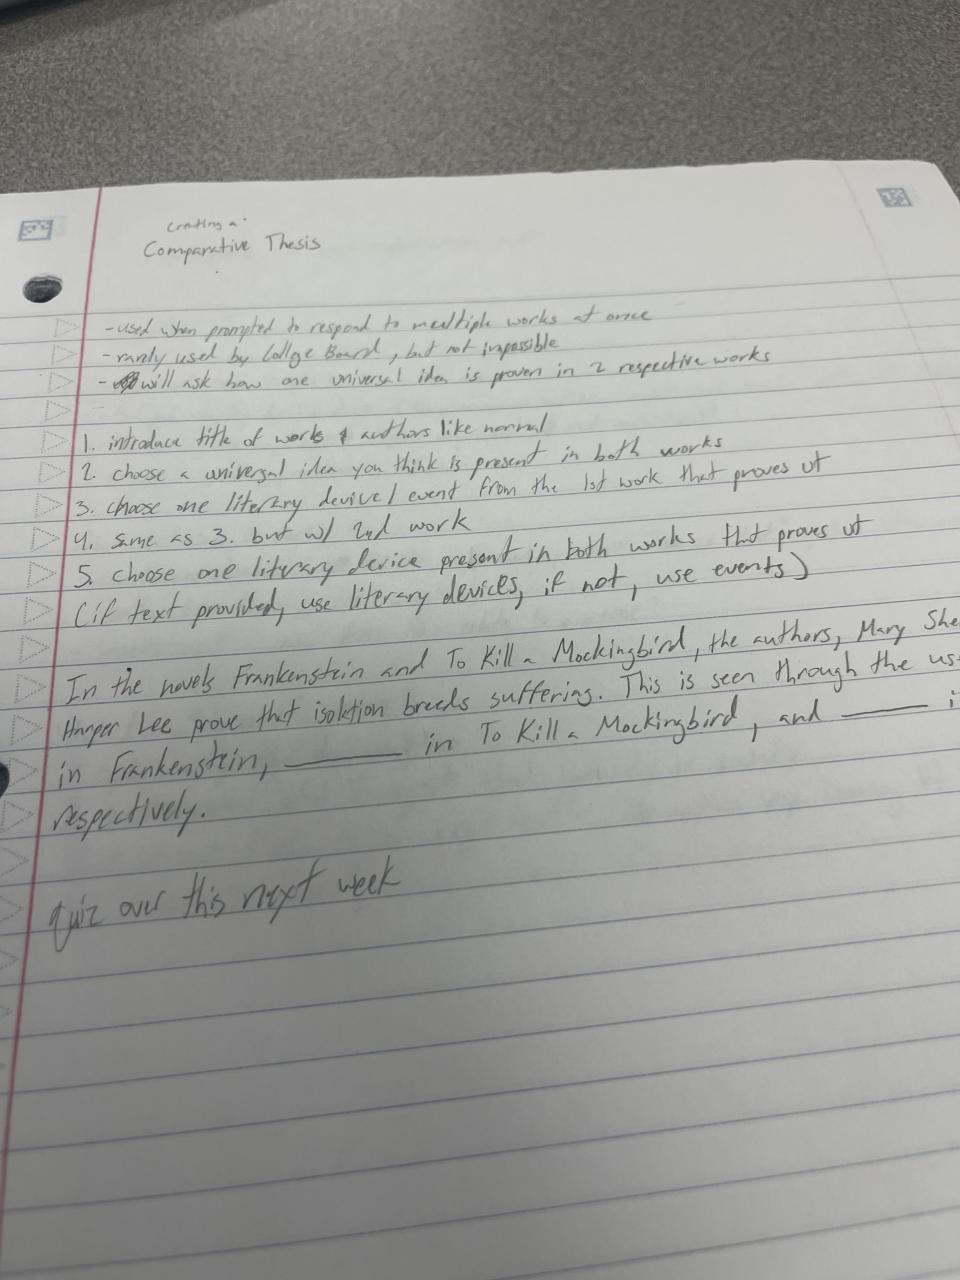 creating a
Comparative Thesis
- used when prompted to respond to multiple works at once
- rarely used by College Board, but not impossible
- will ask how one universal idea is proven in 2 respective works
1. introduce title of works & authors like normal
2. choose a universal idea you think is present in both works
3. choose one literary device/event from the 1st work that proves ut
4. same as 3. but w/ 2nd work
5. choose one literary device present in both works that proves ut
(if text provided, use literary devices, if not, use events)
In the novels Frankenstein and To Kill a Mockingbird, the authors, Mary She
Harper Lee prove that isolation breeds suffering. This is seen through the us
in Frankenstein, ______ in To Kill a Mockingbird, and ______ i
respectively.
quiz over this next week